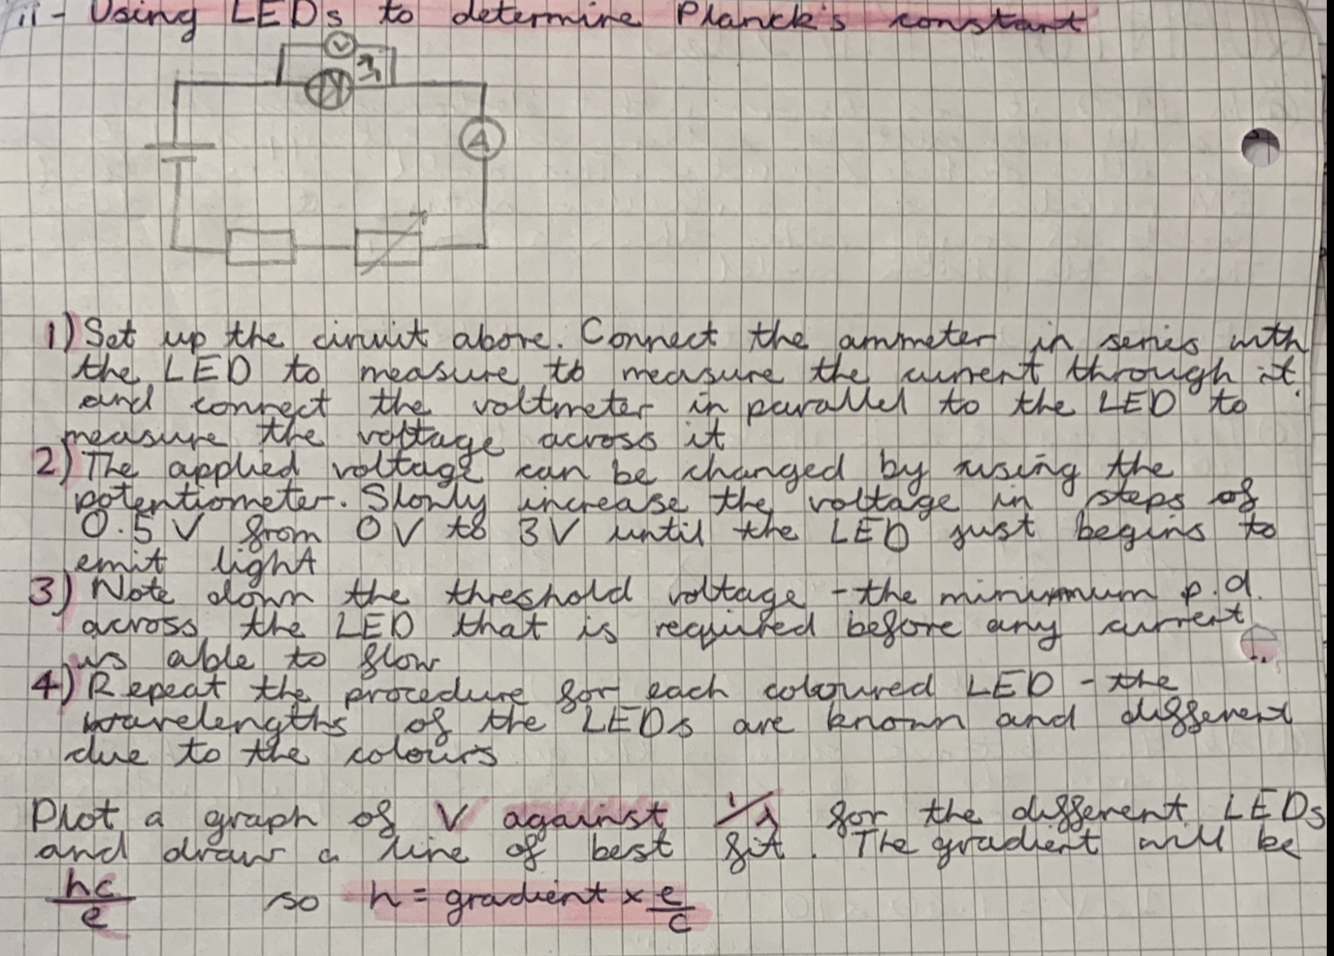 ii - Using LEDs to determine Planck's constant
V
A
1) Set up the circuit above. Connect the ammeter in series with
the LED to measure to measure the current through it
and connect the voltmeter in parallel to the LED to
measure the voltage across it
2) The applied voltage can be changed by using the
potentiometer. Slowly increase the voltage in steps of
0.5 V from 0V to 3V until the LED just begins to
emit light
3) Note down the threshold voltage - the minimum p.d.
across the LED that is required before any current
is able to flow
4) Repeat the procedure for each coloured LED - the
wavelengths of the LEDs are known and different
due to the colours
Plot a graph of V against 1/λ for the different LEDs
and draw a line of best fit. The gradient will be
hc/e so h = gradient × e/c